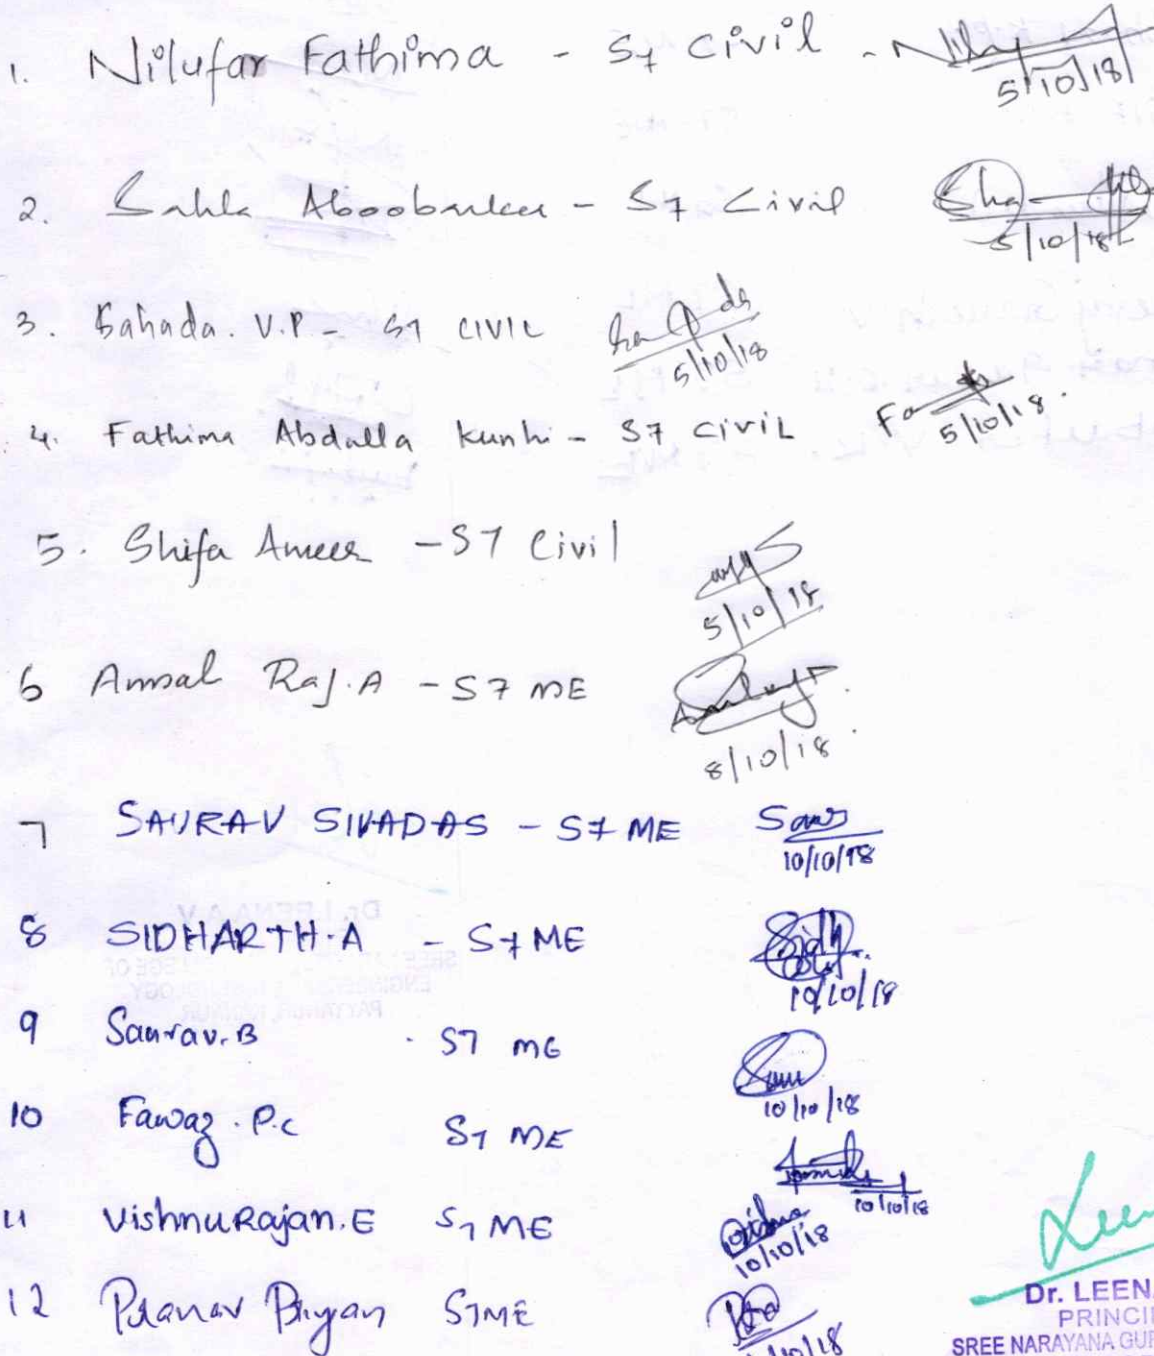 1. Nilufar Fathima - S7 civil - Nilu
5/10/18
2. Sahla Aboobacker - S7 Civil Sha
5/10/18
3. Sahada. V.P - S7 CIVIL
5/10/18
4. Fathima Abdulla Kunhi - S7 CIVIL Fa
5/10/18.
5. Shifa Ameer - S7 Civil
5/10/18
6 Amsal Raj.A - S7 ME
8/10/18.
7 SAURAV SIVADAS - S7 ME Saurav
10/10/18
8 SIDHARTH.A - S7 ME Sidh
10/10/18
9 Saurav.B . S7 ME
10/10/18
10 Fawaz. P.C S7 ME
10/10/18
11 Vishnu Rajan.E S7 ME
10/10/18
12 Pranav Priyan S7 ME
10/18
Lee
Dr. LEEN
PRINCI
SREE NARAYANA GU